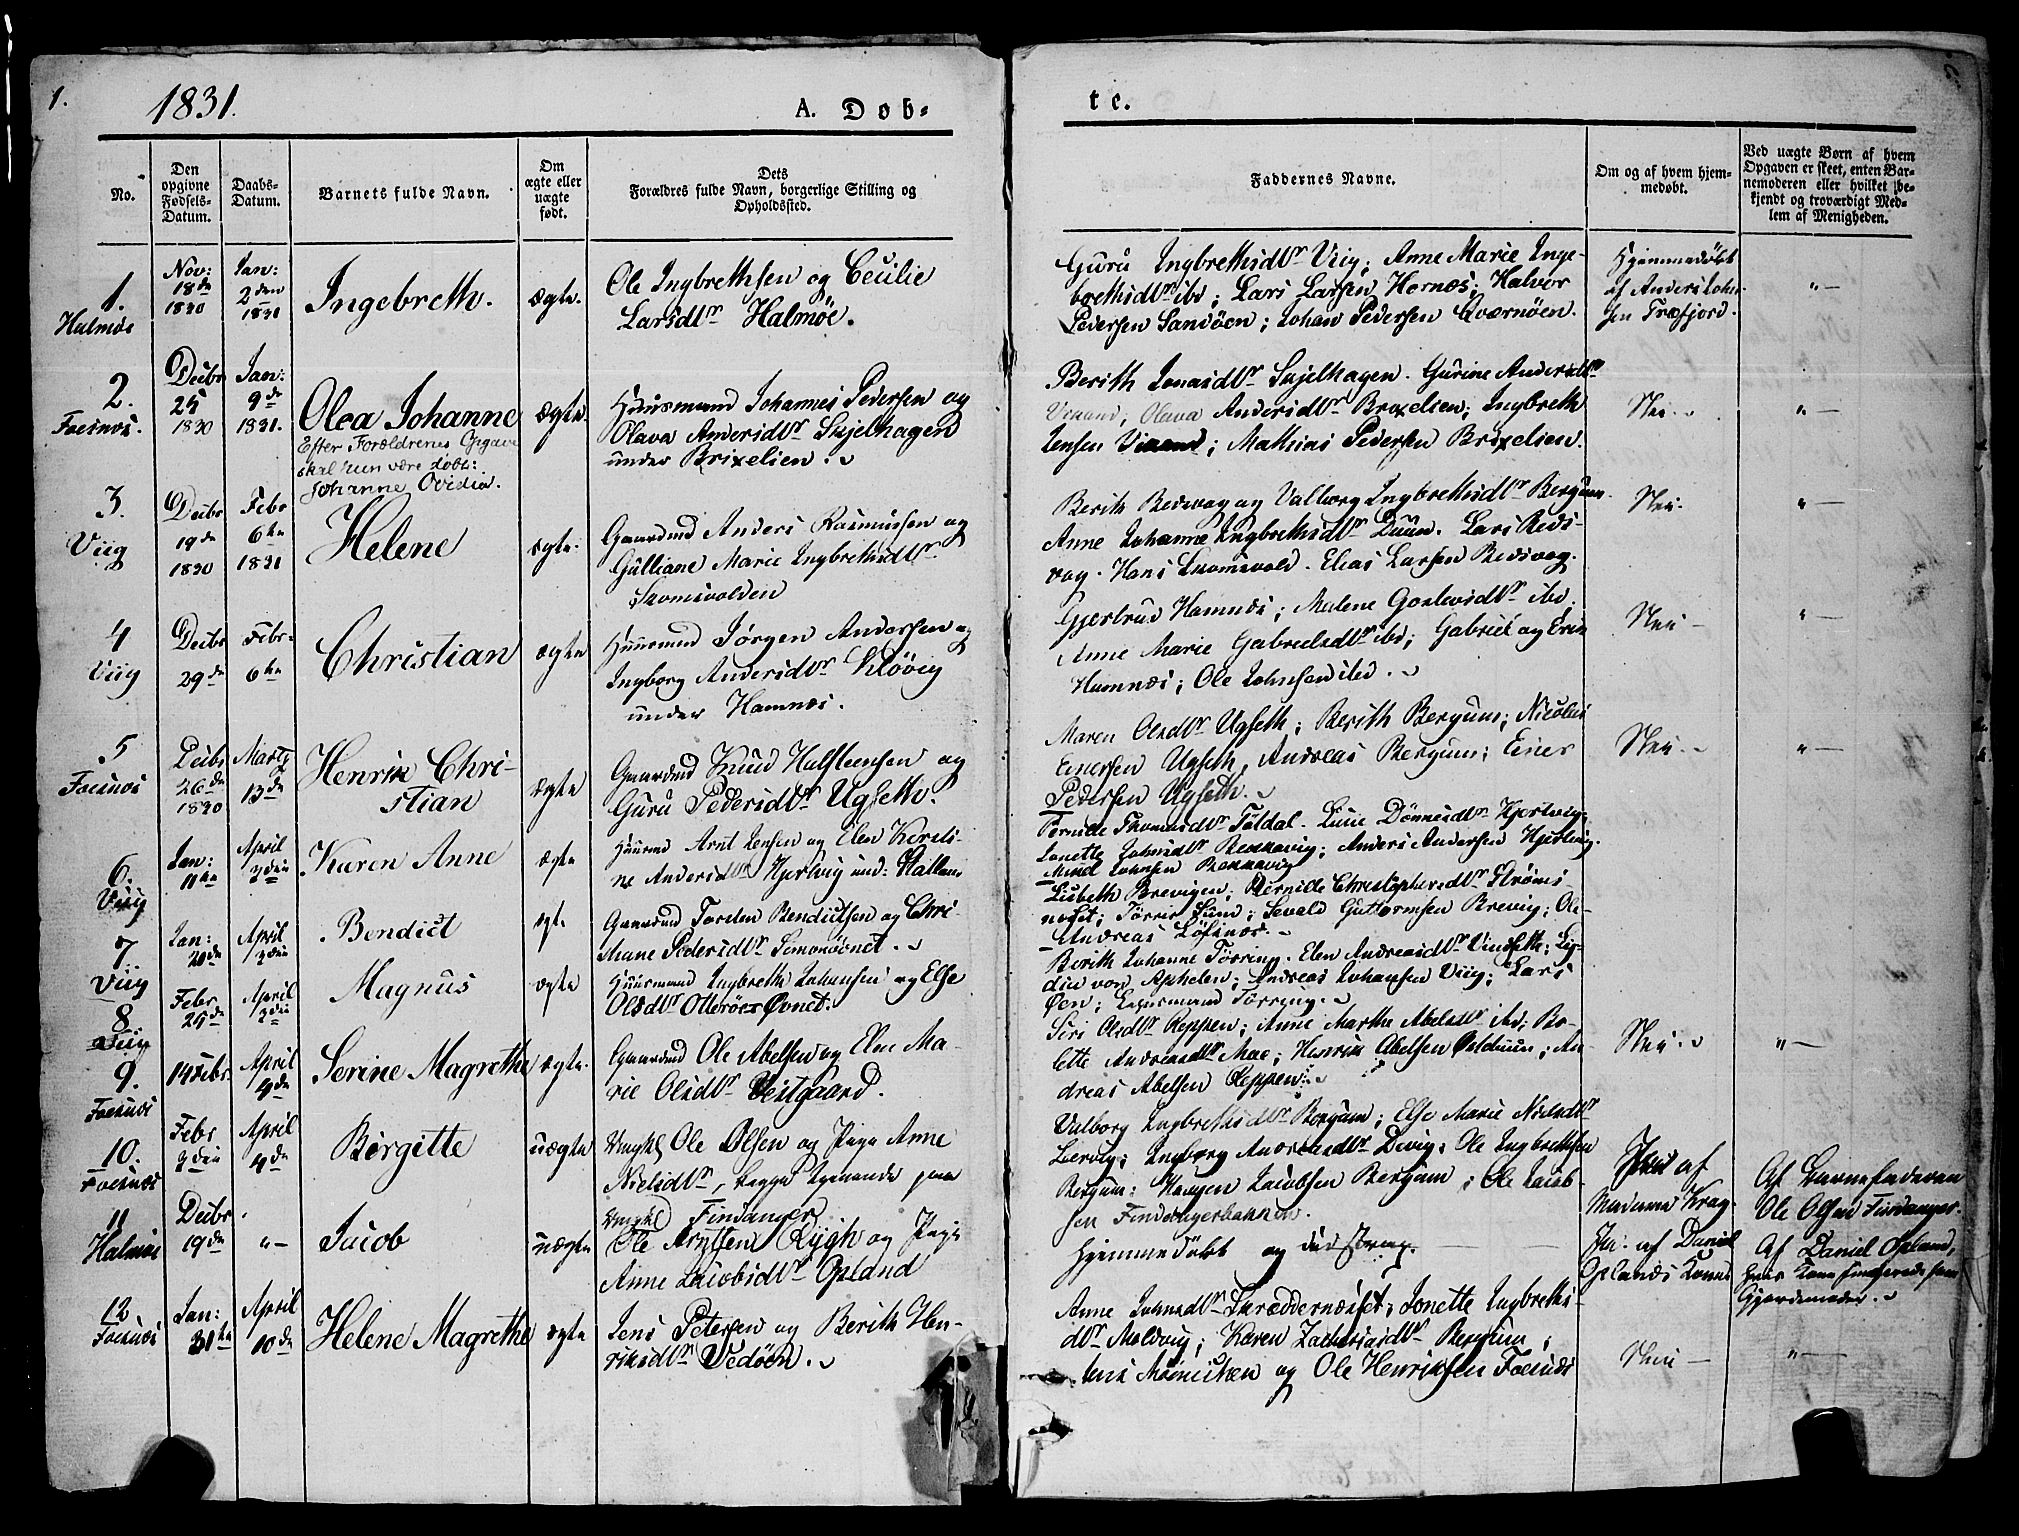 1.
1831.
A. Døb-
te.
No.
Den opgivne Fødsels-Datum.
Daabs-Datum.
Barnets fulde Navn.
Om ægte eller uægte født.
Dets
Forældres fulde Navn, borgerlige Stilling og
Opholdssted.
Faddernes Navne.
Om og af hvem hjem-
medøbt.
Ved uægte Børn af hvem
Opgaven er skeet, enten Bar-
nemoderen eller hvilket be-
kjendt og troværdigt Med-
lem af Menigheden.
1.
Halmøe
Nov:
18de
1830
Jan:
2den
1831
Ingebreth.
ægte.
Ole Ingbrethsen og Cecilie
Larsdtr Halmøe.
Guru Ingbrethsdtr Viig; Anne Marie Inge-
brethsdtr ibd; Lars Larsen Hornæs; Halvor
Pedersen Sandøen; Johan Pedersen Qværnøen.
Hjemmedøbt
af Anders John-
sen Træfjord.
"—
2.
Foesnæs.
Decbr
25
1830
Jan:
9de
1831.
Olea Johanne
Efter Forældrenes Opgave
skal hun være døbt:
Johanne Ovidia.
ægte.
Huusmand Johannes Pedersen og
Olava Andersdtr Skjelhagen
under Brixelien.
Berith Jonasdtr Skjelhagen. Gurine Andersdtr
Olava Andersdtr Brixelien; Ingbreth
Jensen; Mathias Pedersen Brixelien.
Nei.
"—
3.
Viig
Decbr
19de
1830
Febr
6te
1831
Helene
ægte.
Gaardmd Anders Rasmussen og
Gulliane Marie Ingbrethsdtr
Skomsvolden
Berith Bedsvag og Valborg Ingbrethsdtr Bergum.
Anne Johanne Ingbrethsdtr Duun. Lars Beds-
vag. Hans Skomsvold. Elias Larsen Bedsvag.
Nei.
"—
4
Viig
Decbr
29de
Febr.
6te
Christian
ægte
Huusmd Jørgen Andersen og
Ingborg Andersdtr Kløvig
under Hamnæs.
Gjertrud Hamnæs; Malene ibd.
Anne Marie Gabrielsdtr ibd; Gabriel og Erik
Hamnæs; Ole Johnsen ibd.
Nei
"—
5
Foesnæs
Decbr
26de
1830
Marts
13de
Henrik Chri-
stian
ægte
Gaardmd Knud Halsteensen og
Guru Pedersdtr Ugseth.
Maren Olsdtr Ugseth; Berith Bergum; Nicolai
Einersen Ugseth, Andreas Bergum; Einer
Pedersen Ugseth.
Nei.
"—
6.
Viig
Jan:
11te
April
3die
Karen Anne
ægte
Huusmd Arnt Jensen og Elen Kersti-
ne Andersdtr Hjertvig
Pernille Thomasdtr Toldal. Lucie Dønnesdtr Hjertvig;
Jonette; Anders Andersen Hjertvig.
7
Viig
Jan:
20de
April
3die
Bendict
ægte
Gaardmd Torsten Bendictsen og Chri-
stiane Pedersdtr.
Lisbeth Brevigen; Pernille Christophersdtr Strøms-
næset; Sund; Sevald Guttormsen Brevig; Ole
Andreas.
8
Viig
Febr
25de
April
3die
Magnus
ægte
Huusmand Ingbreth Johansen og Else
Olsdtr Otterøes Øvnet.
Berith Johanne Tørring. Elen Andreasdtr;
von Aphelen; Andreas Johansen Viig; Lars
Øen; Tørring.
9.
Foesnæs
14 Febr.
April
4de
Serine Magrethe
ægte.
Gaardmd Ole Abelsen og Elen Ma-
rie Olsdtr Vestgaard.
Siri Olsdtr Reppen; Anne Marthe Abelsdtr ibd; Bo-
lette Andreasdtr Moe; Henrik Abelsen; An-
dreas Abelsen Reppen.
Nei.
"—
10.
Foesnæs
Febr
3die
April
4de
Birgitte
uægte
Ungkl Ole Olsen og Pige Anne
Nielsdtr, begge tjenende paa
Findanger
Valborg Ingbrethsdtr Bergum; Else Marie Nielsdtr
Lervig; Ingborg Andreasdtr Devig; Ole Ingbrethsen
Bergum: Hagen Jacobsen Bergum; Ole Jacob-
sen Findangerbakken.
Ja af
Madame Krog.
Af Barnefaderen
Ole Olsen Findanger.
11
Halmøe
Decbr
19de
"—
Jacob
uægte
Ungkl
Ole Arntsen Rygh og Pige
Anne Jacobsdtr Opland
Hjemmedøbt og
Ja: af Daniel
Oplands Kone
Af Daniel Opland,
hvis Kone fungerede som
Gjordemoder.
12
Foesnæs
Jan:
31te
April
10de
Helene Magrethe
ægte
Jens Petersen og Berith Hen-
riksdtr Vedøen.
Anne Johnsdtr; Jonette Ingbreths-
dtr Molvig; Karen Zachariasdtr Bergum;
og Ole Henriksen Foesnæs
Nei
"—